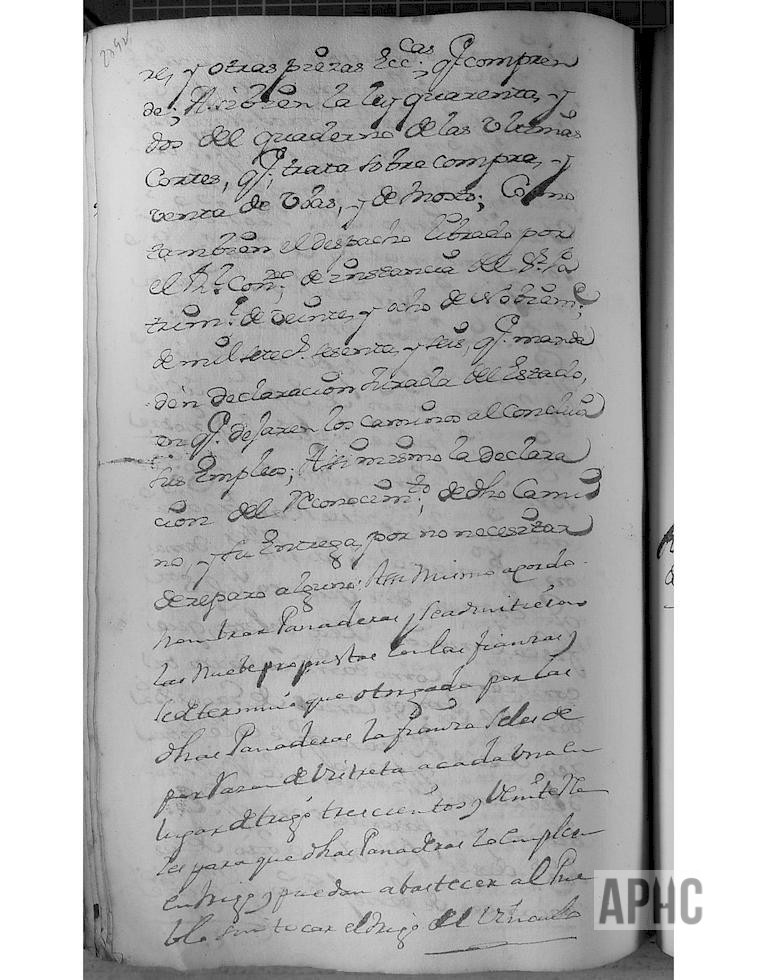 res, y otras prezas Ecc.cas q.e compren
de; Asibien la ley quarenta, y
dos del quaderno de las Ultimas
Cortes, q.e trata sobre compra, y
venta de Vbas, y de Mosto; Como
tambien el despacho librado por
el R.l Con.o; de instancia del S.r Pa
trim.l de veinte, y ocho de Nobiem.e;
de mil setec.s sesenta, y seis, q.e manda
den declaracion Jurada del Estado,
en q.e dejaren los caminos al concluir
sus Empleos; Asimismo la declara
cion del Reconocim.to; de dho Cami
no, y su Entrega, por no necesitar
de reparo alguno: Asi Mismo acordo
nombrar Panaderas y se admitieron
las Nuebe propuestas con las fianzas y
se determinó que otorgada por las
dhas Panaderas la fianza se les de
por Varon de Vitreta a cada Una en
lugar de trigo trescientos y Veinte Rea
les para que dhas Panaderas lo Empleen
en trigo y puedan abastecer al Pue
blo sin tocar el trigo del Vinculo
APHC